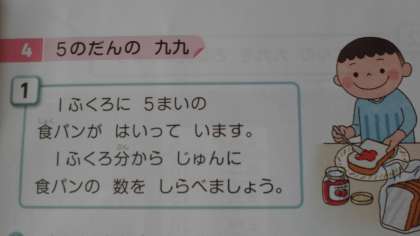 4 5のだんの 九九
1
1ふくろに 5まいの
食パンが はいって います。
1ふくろ分から じゅんに
食パンの 数を しらべましょう。